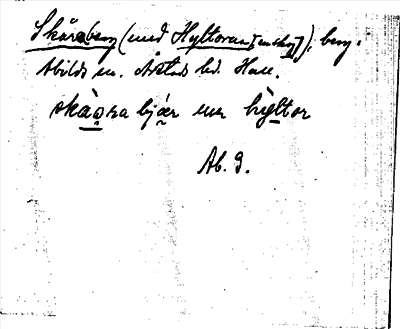 Skåraberg (med Hyltorna[enkry]), berg i
Abilds sn. Årstads hd. Hall.
skå̀ǫra bjǽr mæ hỳltor
Ab. 9.